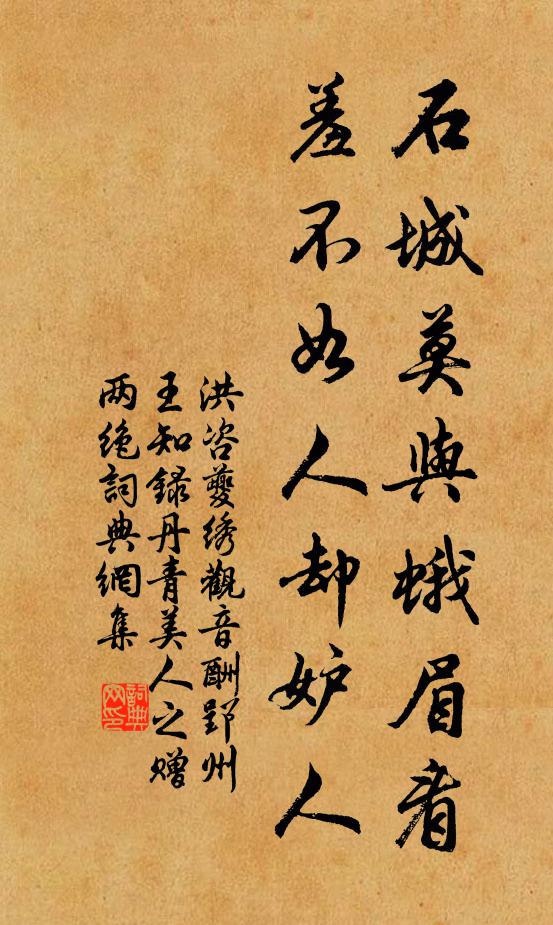 石城莫與蛾眉看
羞不如人却妒人
洪咨夔绣觀音酬郢州
王知録丹青美人之赠
两绝詞典網集
詞典网印